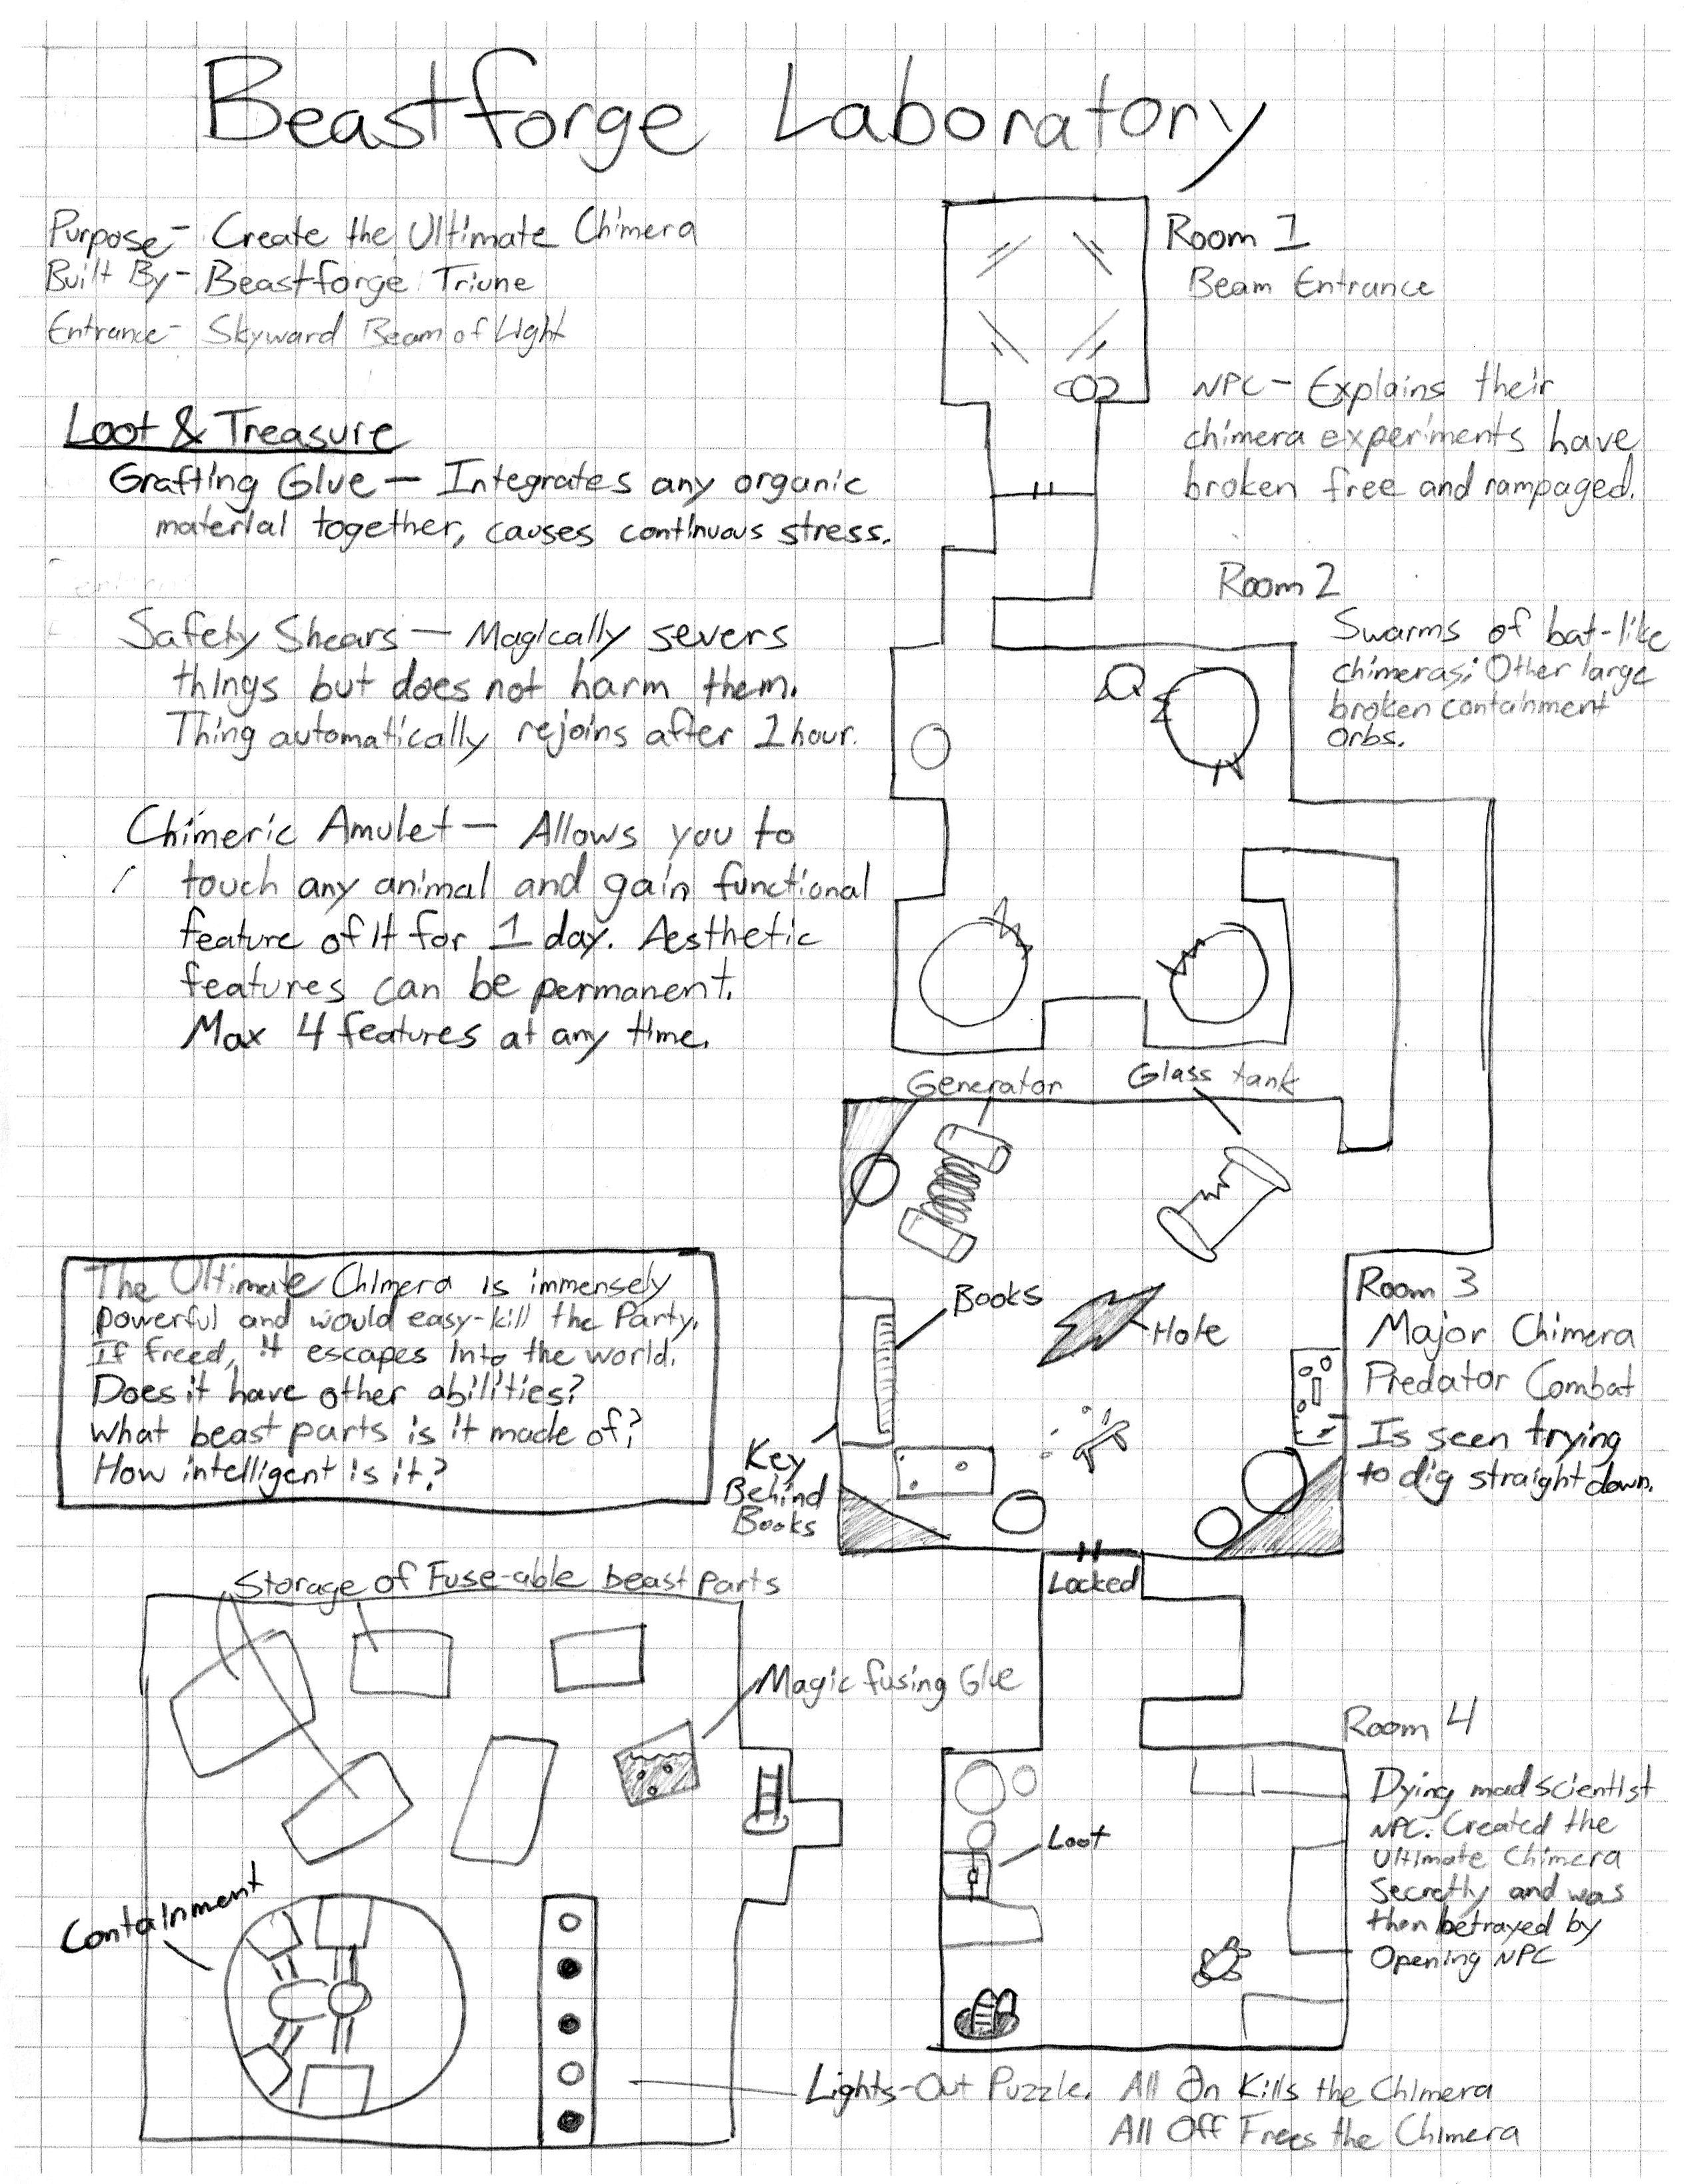 Beastforge Laboratory
Purpose- Create the Ultimate Chimera
Built By- Beastforge Triune
Entrance- Skyward Beam of Light
Loot & Treasure
Grafting Glue — Integrates any organic
material together, causes continuous stress.
Safety Shears — Magically severs
things but does not harm them.
Thing automatically rejoins after 1 hour.
Chimeric Amulet — Allows you to
touch any animal and gain functional
feature of it for 1 day. Aesthetic
features can be permanent.
Max 4 features at any time.
The Ultimate Chimera is immensely
powerful and would easy-kill the Party.
If freed, it escapes into the world.
Does it have other abilities?
What beast parts is it made of?
How intelligent is it?
Room 1
Beam Entrance
NPC - Explains their
chimera experiments have
broken free and rampaged.
Room 2
Swarms of bat-like
chimeras; Other large
broken containment
orbs.
Generator
Glass tank
Books
Hole
Key
Behind
Books
Room 3
Major Chimera
Predator Combat
Is seen trying
to dig straight down.
Locked
Room 4
Dying mad scientist
NPC. Created the
Ultimate Chimera
Secretly and was
then betrayed by
Opening NPC
Loot
Storage of Fuse-able beast parts
Magic fusing Glue
Containment
Lights-Out Puzzle. All On Kills the Chimera
All Off Frees the Chimera